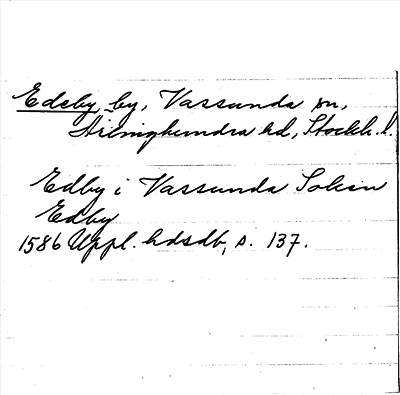 Edeby by, Vassunda sn,
Ärlinghundra hd, Stockh. l.
Edby i Vassunda Soken
Edby
1586 Uppl. hdsdb, s. 137.